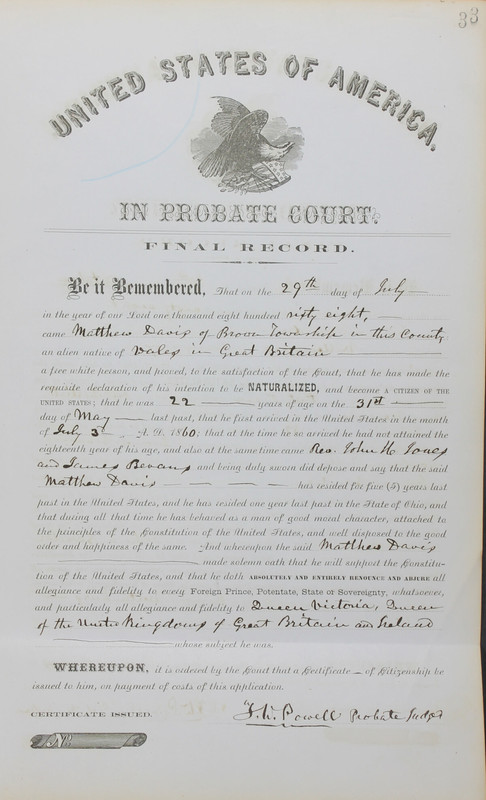 33
UNITED STATES OF AMERICA.
IN PROBATE COURT.
FINAL RECORD.
Be it Remembered, That on the 29th day of July
in the year of our Lord one thousand eight hundred sixty eight,
came Matthew Davis of Brown Township in this County
an alien native of Wales in Great Britain
a free white person, and proved, to the satisfaction of the Court, that he has made the
requisite declaration of his intention to be NATURALIZED, and become A CITIZEN OF THE
UNITED STATES; that he was 22 years of age on the 31st
day of May last past, that he first arrived in the United States in the month
of July 3 A. D. 1860; that at the time he so arrived he had not attained the
eighteenth year of his age, and also at the same time came Rev. John H. Jones
and James Bevans and being duly sworn did depose and say that the said
Matthew Davis has resided for five (5) years last
past in the United States, and he has resided one year last past in the State of Ohio, and
that during all that time he has behaved as a man of good moral character, attached to
the principles of the Constitution of the United States, and well disposed to the good
order and happiness of the same. And whereupon the said Matthew Davis
made solemn oath that he will support the Constitu-
tion of the United States, and that he doth ABSOLUTELY AND ENTIRELY RENOUNCE AND ABJURE all
allegiance and fidelity to every Foreign Prince, Potentate, State or Sovereignty, whatsoever,
and particularly all allegiance and fidelity to Queen Victoria, Queen
of the United Kingdoms of Great Britain and Ireland
whose subject he was.
WHEREUPON, it is ordered by the Court that a Certificate of Citizenship be
issued to him, on payment of costs of this application.
CERTIFICATE ISSUED. T. W. Powell Probate Judge
No.